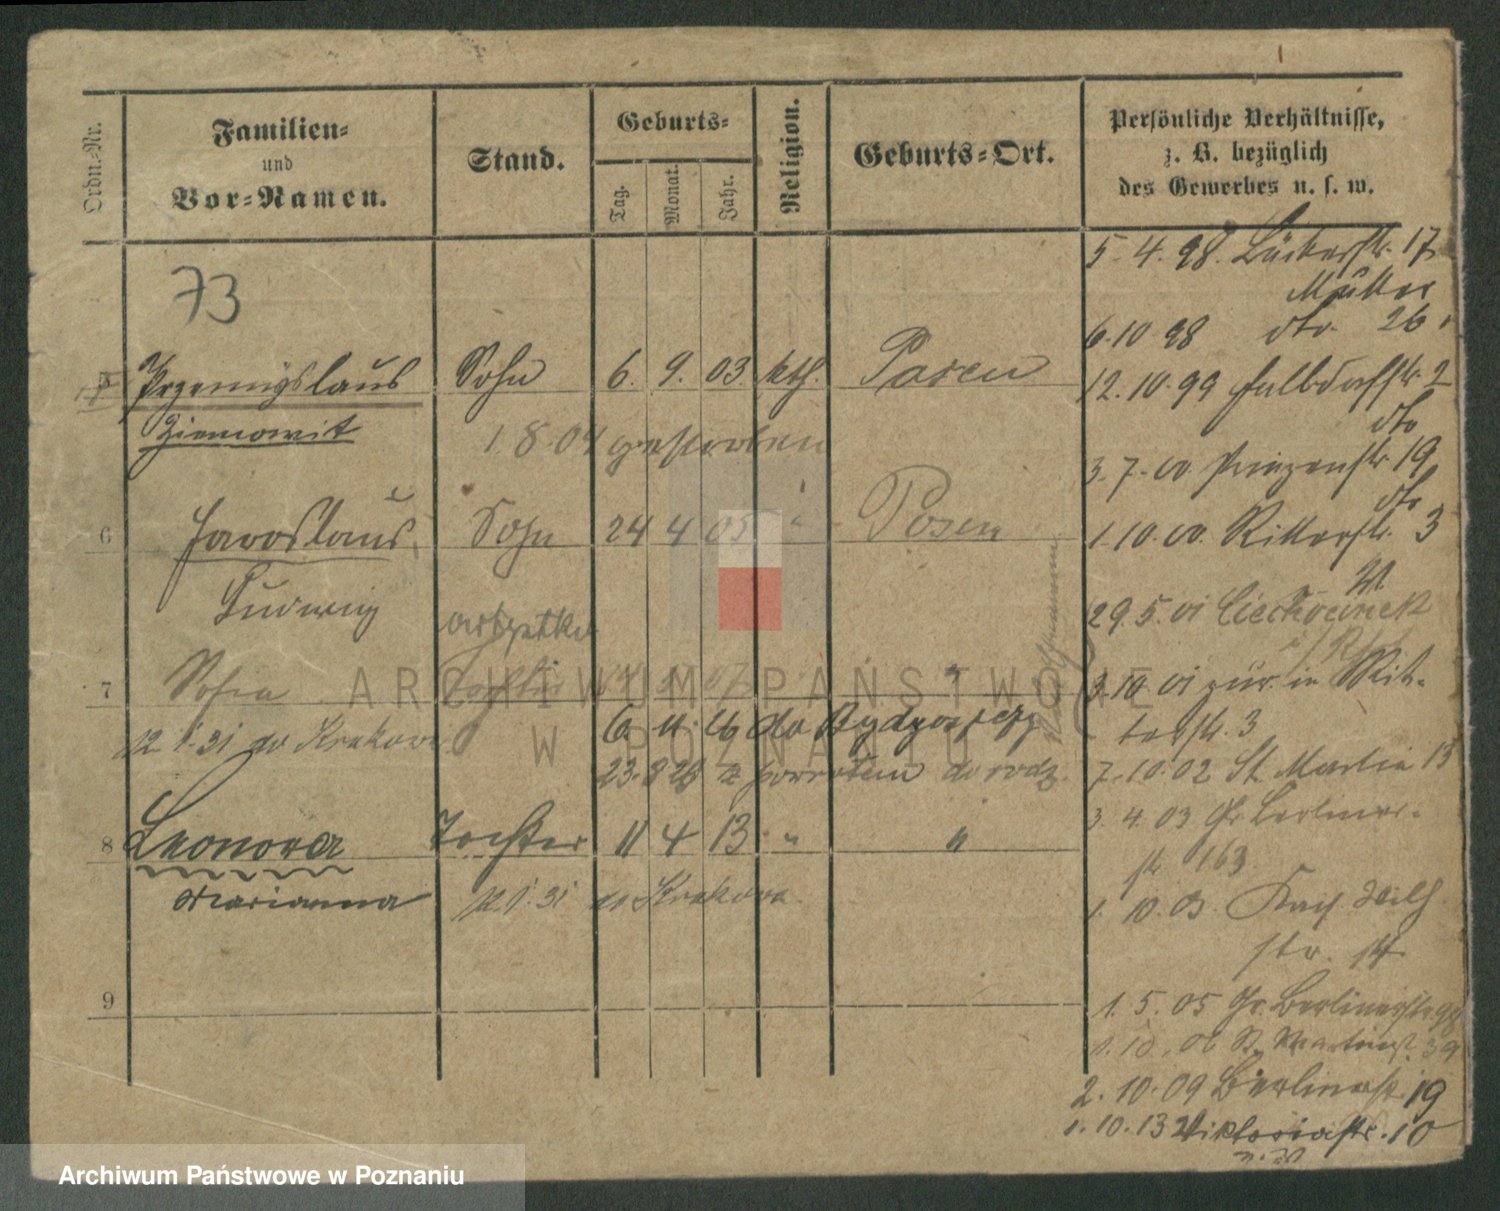 Ordn.-Nr.
Familien-
und
Vor-Namen.
Stand.
Geburts-
Tag.
Monat.
Jahr.
Religion.
Geburts-Ort.
Persönliche Verhältnisse,
z. B. bezüglich
des Gewerbes u. s. w.
73
5 Przemyslaus Sohn 6. 9. 03 kth. Posen
Ziemowit 1. 8. 04 gestorben
6 Jaroslaus Sohn 24 4 05 " Posen
Ludwig
7 Sofia "
12 1. 31 do Krakowa
6. 11. do Bydgoszczy
23. 8 z powrotem do rodz.
8 Leonora Tochter 11 4 13 " "
Marianna 12 1. 31 do Krakowa
9
5. 4. 98. 17
6. 10 98 dto. 26
12. 10. 99 2
dto
3. 7. 00 Prinzenstr. 19
dto
1. 10. 00. Ritterstr. 3
29. 5. 01 Ciechocinek
3. 10. 01 zur. in Rit-
terstr. 3
7. 10. 02 St. Martin 13
3. 4. 03 Gr. Berliner-
str. 163
1. 10. 03. Kais. Wilh
str. 14
1. 5. 05 Gr. Berlinerstr. 98
1. 10. 06 St. Martinst. 39
2. 10. 09 Berlinerstr. 19
1. 10. 13 Viktoriastr. 10
ARCHIWUM PAŃSTWOWE
W POZNANIU
Archiwum Państwowe w Poznaniu